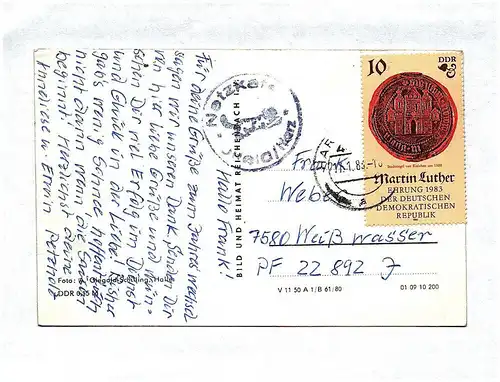 Hallo Frank!
Für Deine Grüße zum Jahreswechsel
sagen wir unseren Dank, senden Dir
von hier liebe Grüße und wün-
schen Dir viel Erfolg im Dienst
und Glück in der Liebe! Bisher
gab's wenig Schnee, hoffentlich
nicht dann wenn die Saison
beginnt. Herzlichst Deine
Anneliese u. Erwin
Foto:
DDR 0,15 M
BILD UND HEIMAT REICHENBACH
V 11 50 A 1/B 61/80
01 09 10 200
Netzkater
Frank
Weber
7580 Weißwasser
PF 22 892 J
10
DDR
Martin Luther
EHRUNG 1983
DER DEUTSCHEN
DEMOKRATISCHEN
REPUBLIK